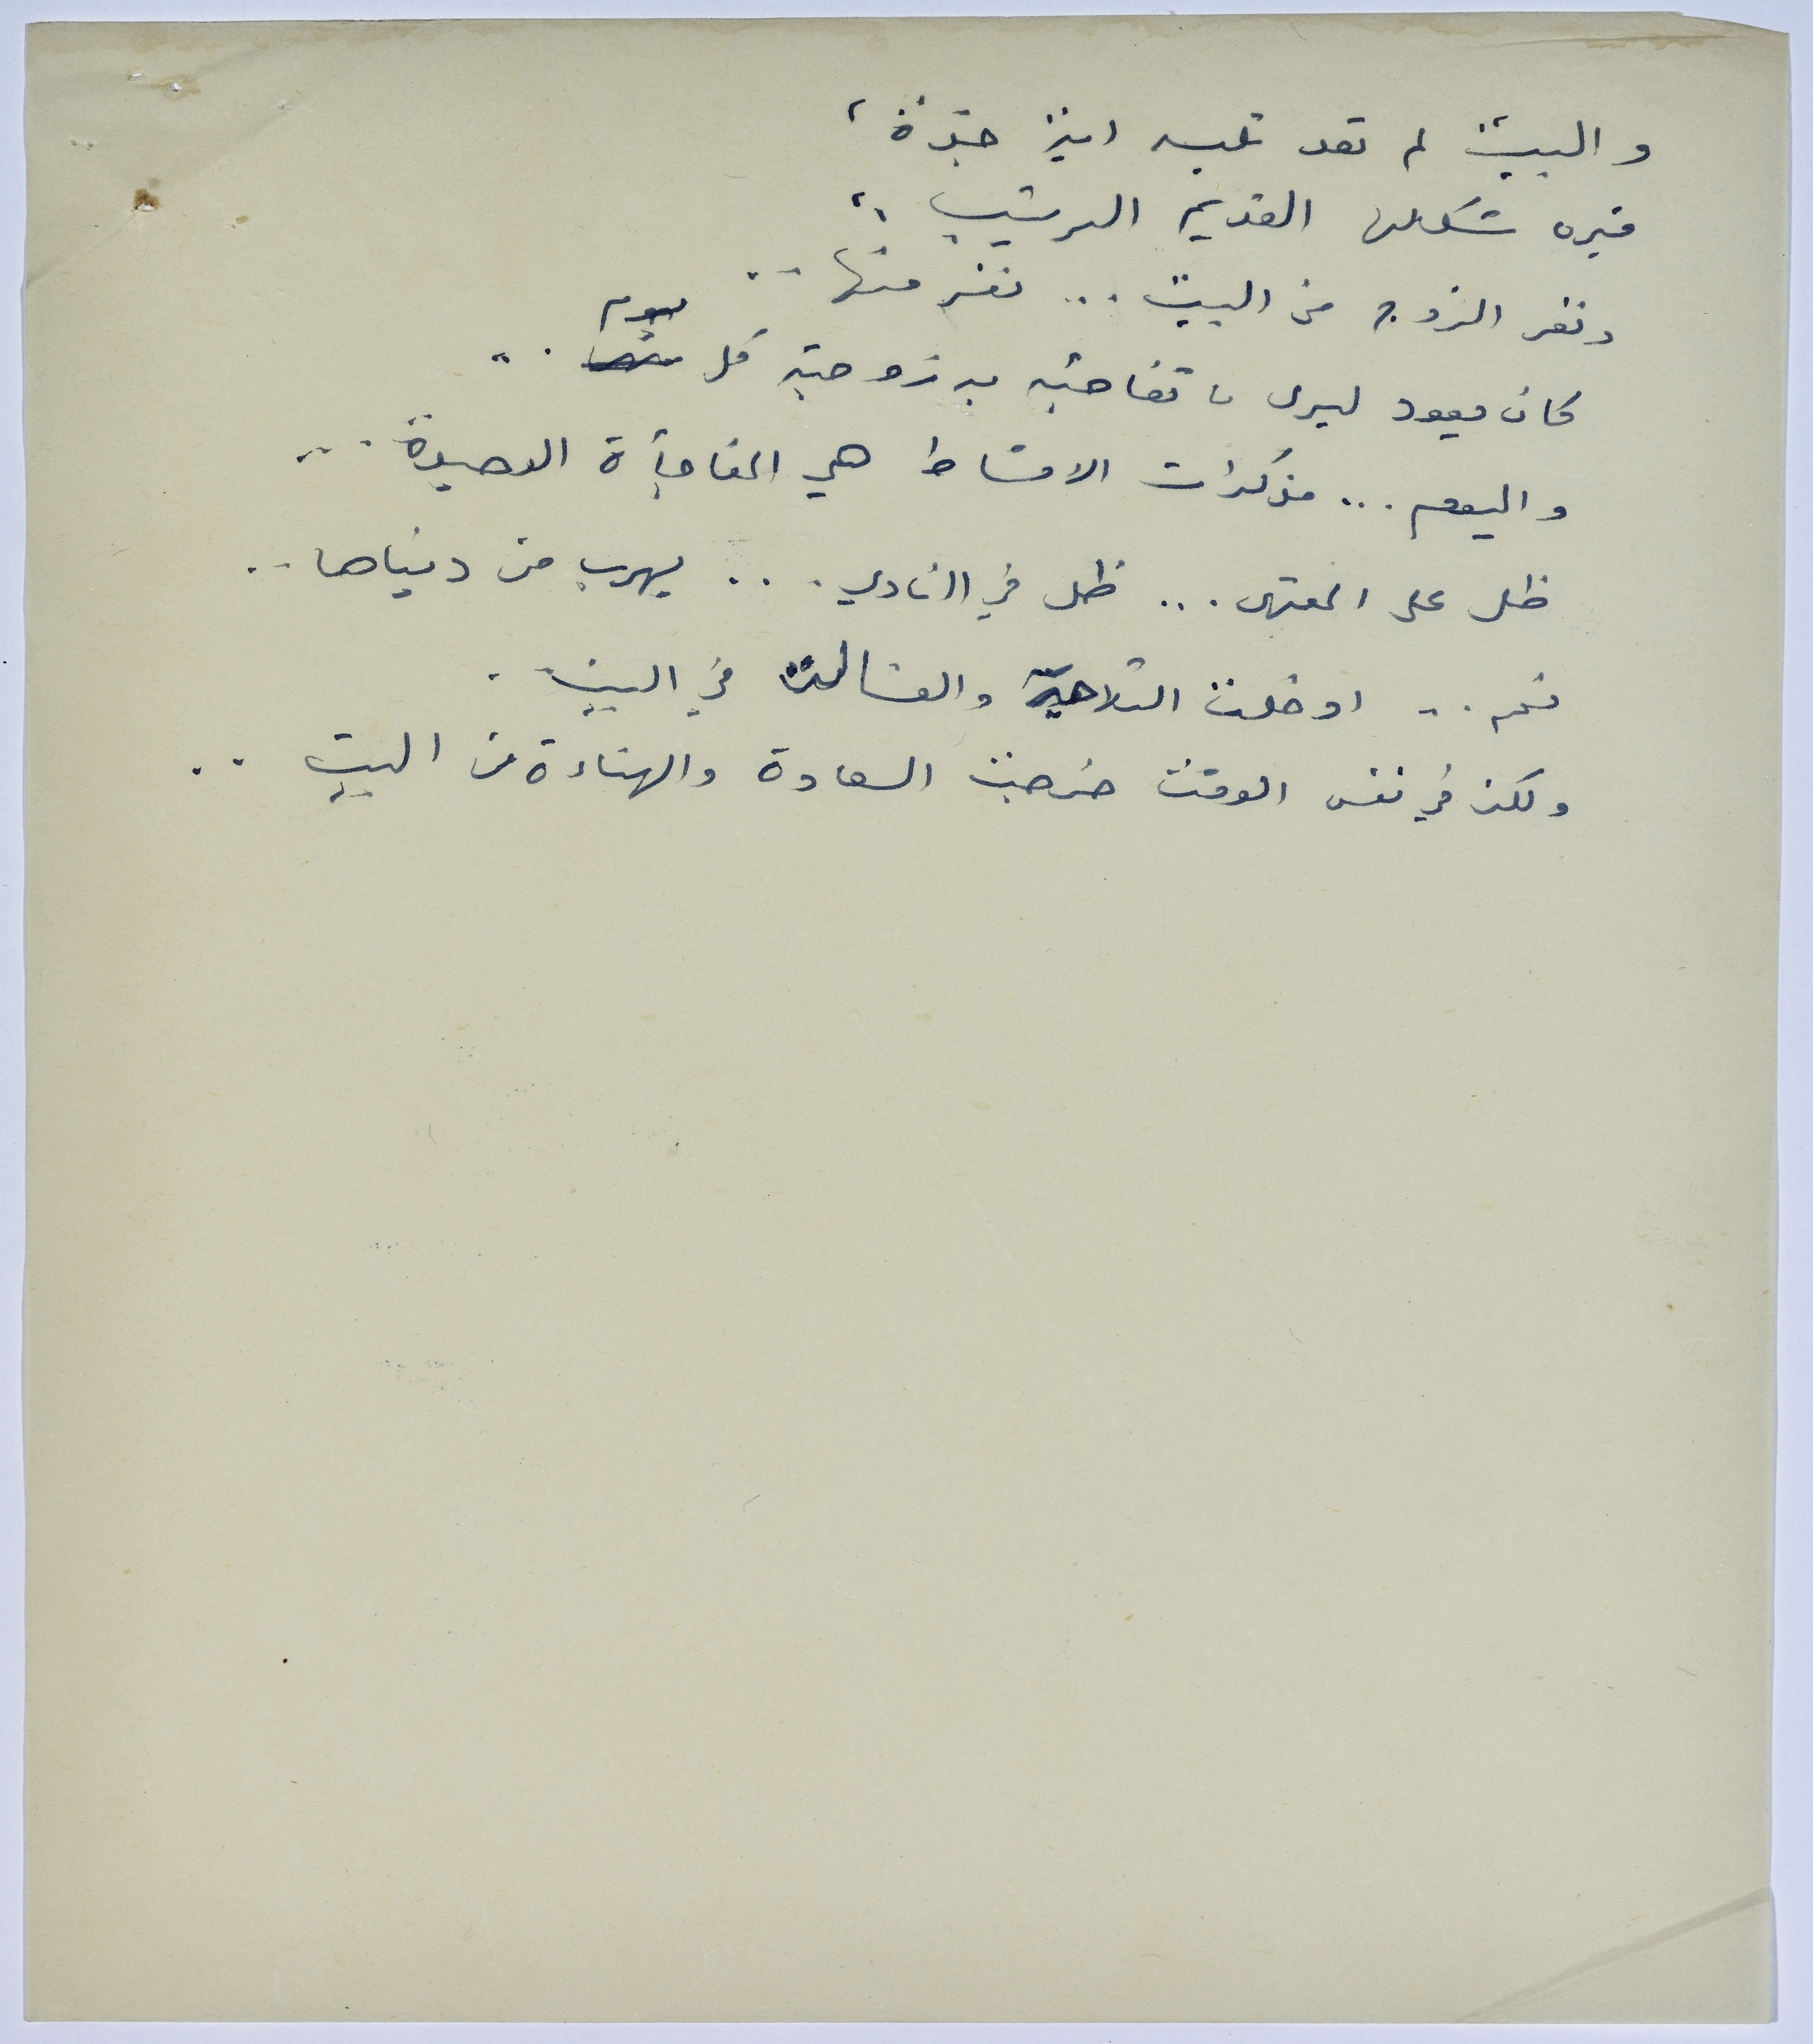 والبيت لم تعد تلبسه اية جدة،
فيره شكلها القديم الرتيب،،
ونفر الزوج من البيت ... نفر منها ..
كان يعود ليرى ما تفاجئه به زوجته كل يوم ..
واليوم ... مذكرات الاقساط هي المفاجأة الوحيدة ...
ظل على المقهى ... ظل في النادي ... يهرب من دنياها ..
نعم .. ادخلت الثلاجة والغسالة في البيت .
ولكن في نفس الوقت خرجت السعادة والهناءة من البيت ..